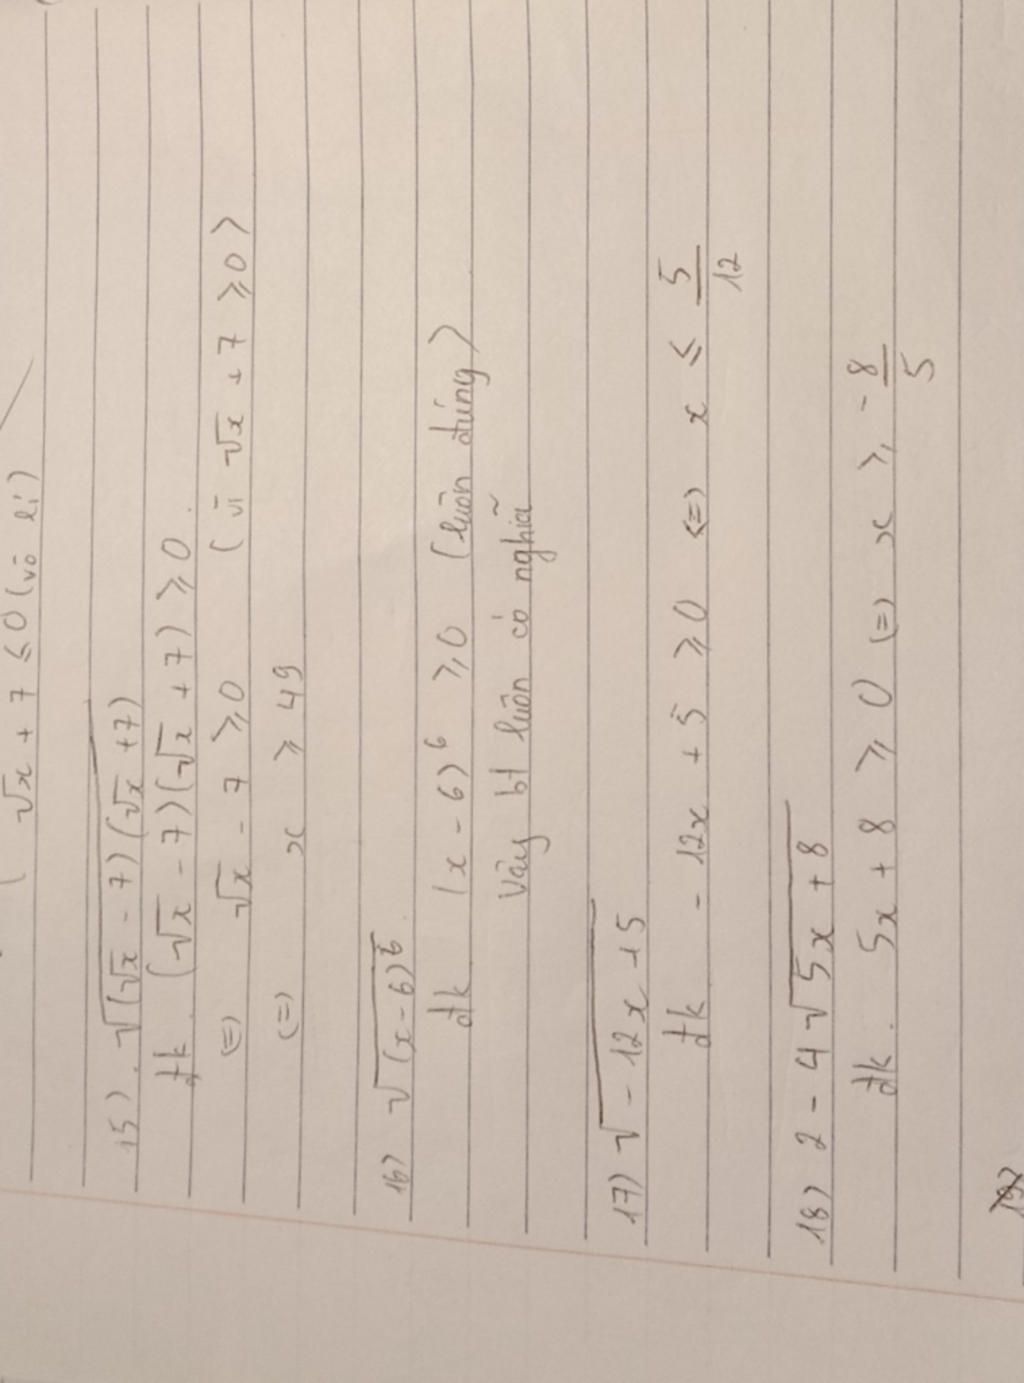 √x + 7 ≤ 0 (vô lí)
15). √((√x - 7)(√x + 7))
đk (√x - 7)(√x + 7) ≥ 0.
(=) √x - 7 ≥ 0 (vì √x + 7 ≥ 0)
(=) x ≥ 49
16) √((x - 6)⁶)
đk (x - 6)⁶ ≥ 0 (luôn đúng)
Vậy bt luôn có nghĩa
17) √(-12x + 5)
đk - 12x + 5 ≥ 0 <=> x ≤ 5/12
18) 2 - 4√(5x + 8)
đk. 5x + 8 ≥ 0 (=) x ≥ - 8/5